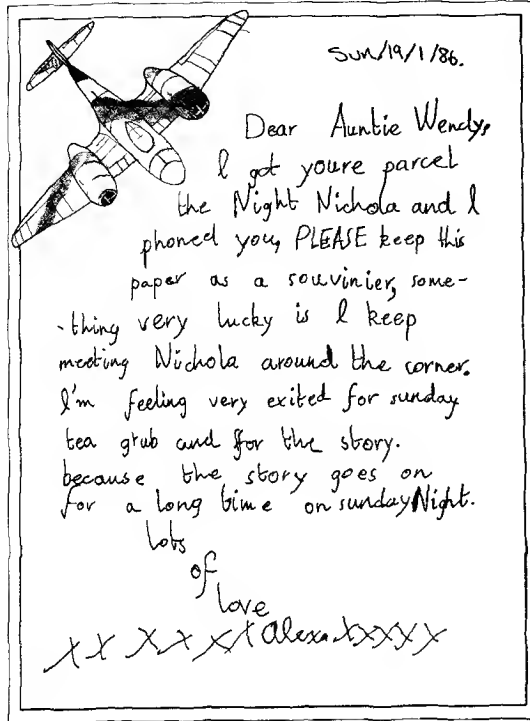 Sun/19/1/86.
Dear Auntie Wendy,
I got youre parcel
the Night Nichola and I
phoned you, PLEASE keep this
paper as a souvinier, some-
-thing very lucky is I keep
meeting Nichola around the corner.
I'm feeling very exited for sunday
tea grub and for the story.
because the story goes on
for a long time on sunday Night.
lots
of
love
XX XXXX Alexa XXXXX